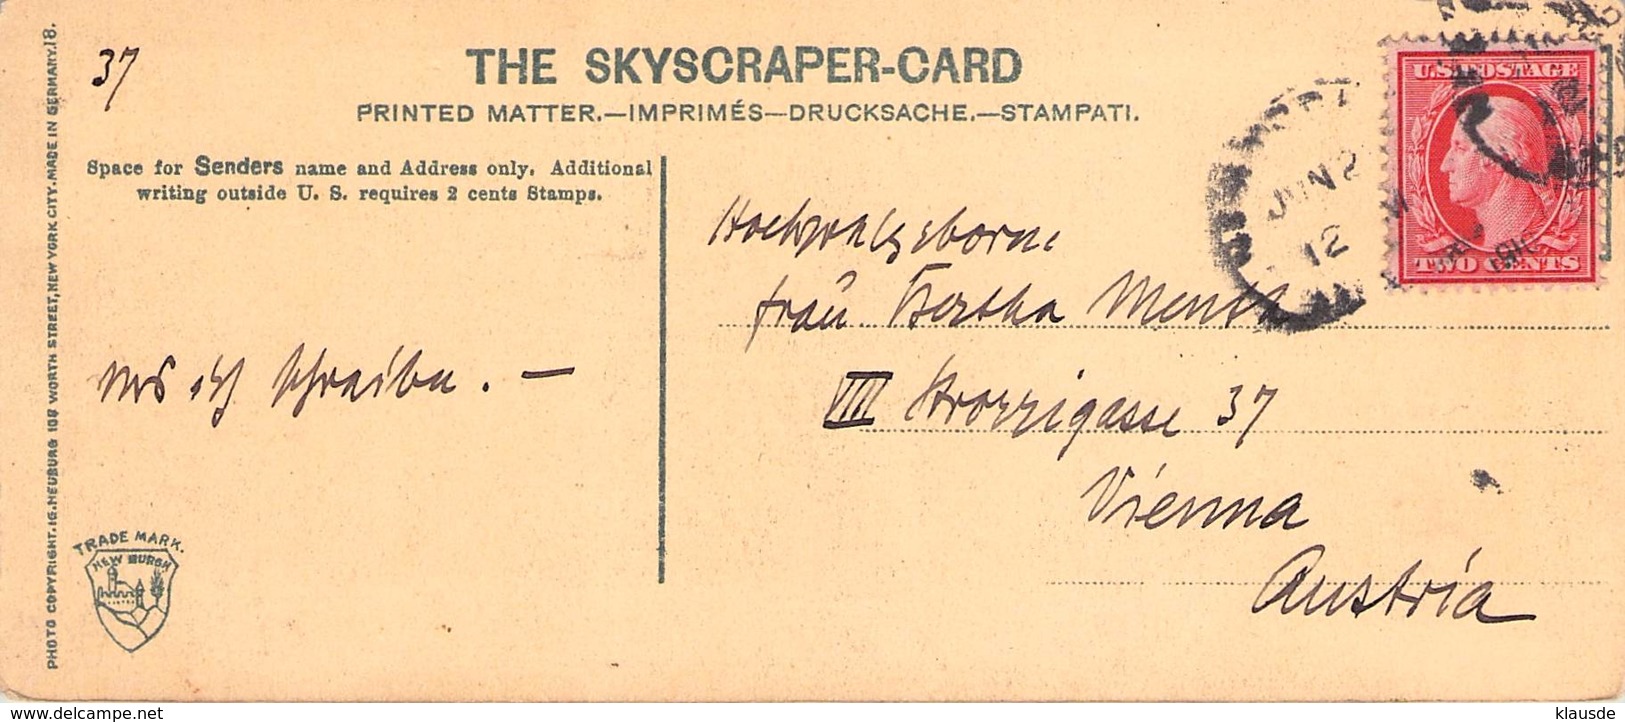 37
THE SKYSCRAPER-CARD
PRINTED MATTER.—IMPRIMÉS—DRUCKSACHE.—STAMPATI.
Space for Senders name and Address only. Additional
writing outside U. S. requires 2 cents Stamps.
U.S. POSTAGE
TWO CENTS
JUN 2
12
Hochwohlgeborne
Frau Bertha
VIII Strozzigasse 37
Vienna
Austria
ich schreiben. —
PHOTO COPYRIGHT. I.G. NEUBURG 108 WORTH STREET, NEW YORK CITY. MADE IN GERMANY. 18.
TRADE MARK.
NEW BURGH
www.delcampe.net
klausde